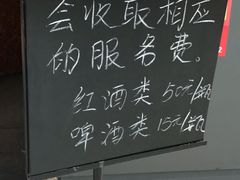 会收取相应
的服务费。
红酒类 50元/瓶
啤酒类 15元/瓶